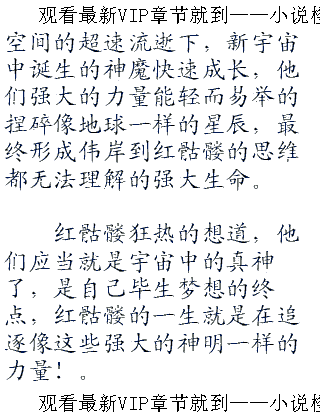 观看最新VIP章节就到——小说
空间的超速流逝下，新宇宙
中诞生的神魔快速成长，他
们强大的力量能轻而易举的
捏碎像地球一样的星辰，最
终形成伟岸到红骷髅的思维
都无法理解的强大生命。
红骷髅狂热的想道，他
们应当就是宇宙中的真神
了，是自己毕生梦想的终
点，红骷髅的一生就是在追
逐像这些强大的神明一样的
力量！。
观看最新VIP章节就到——小说